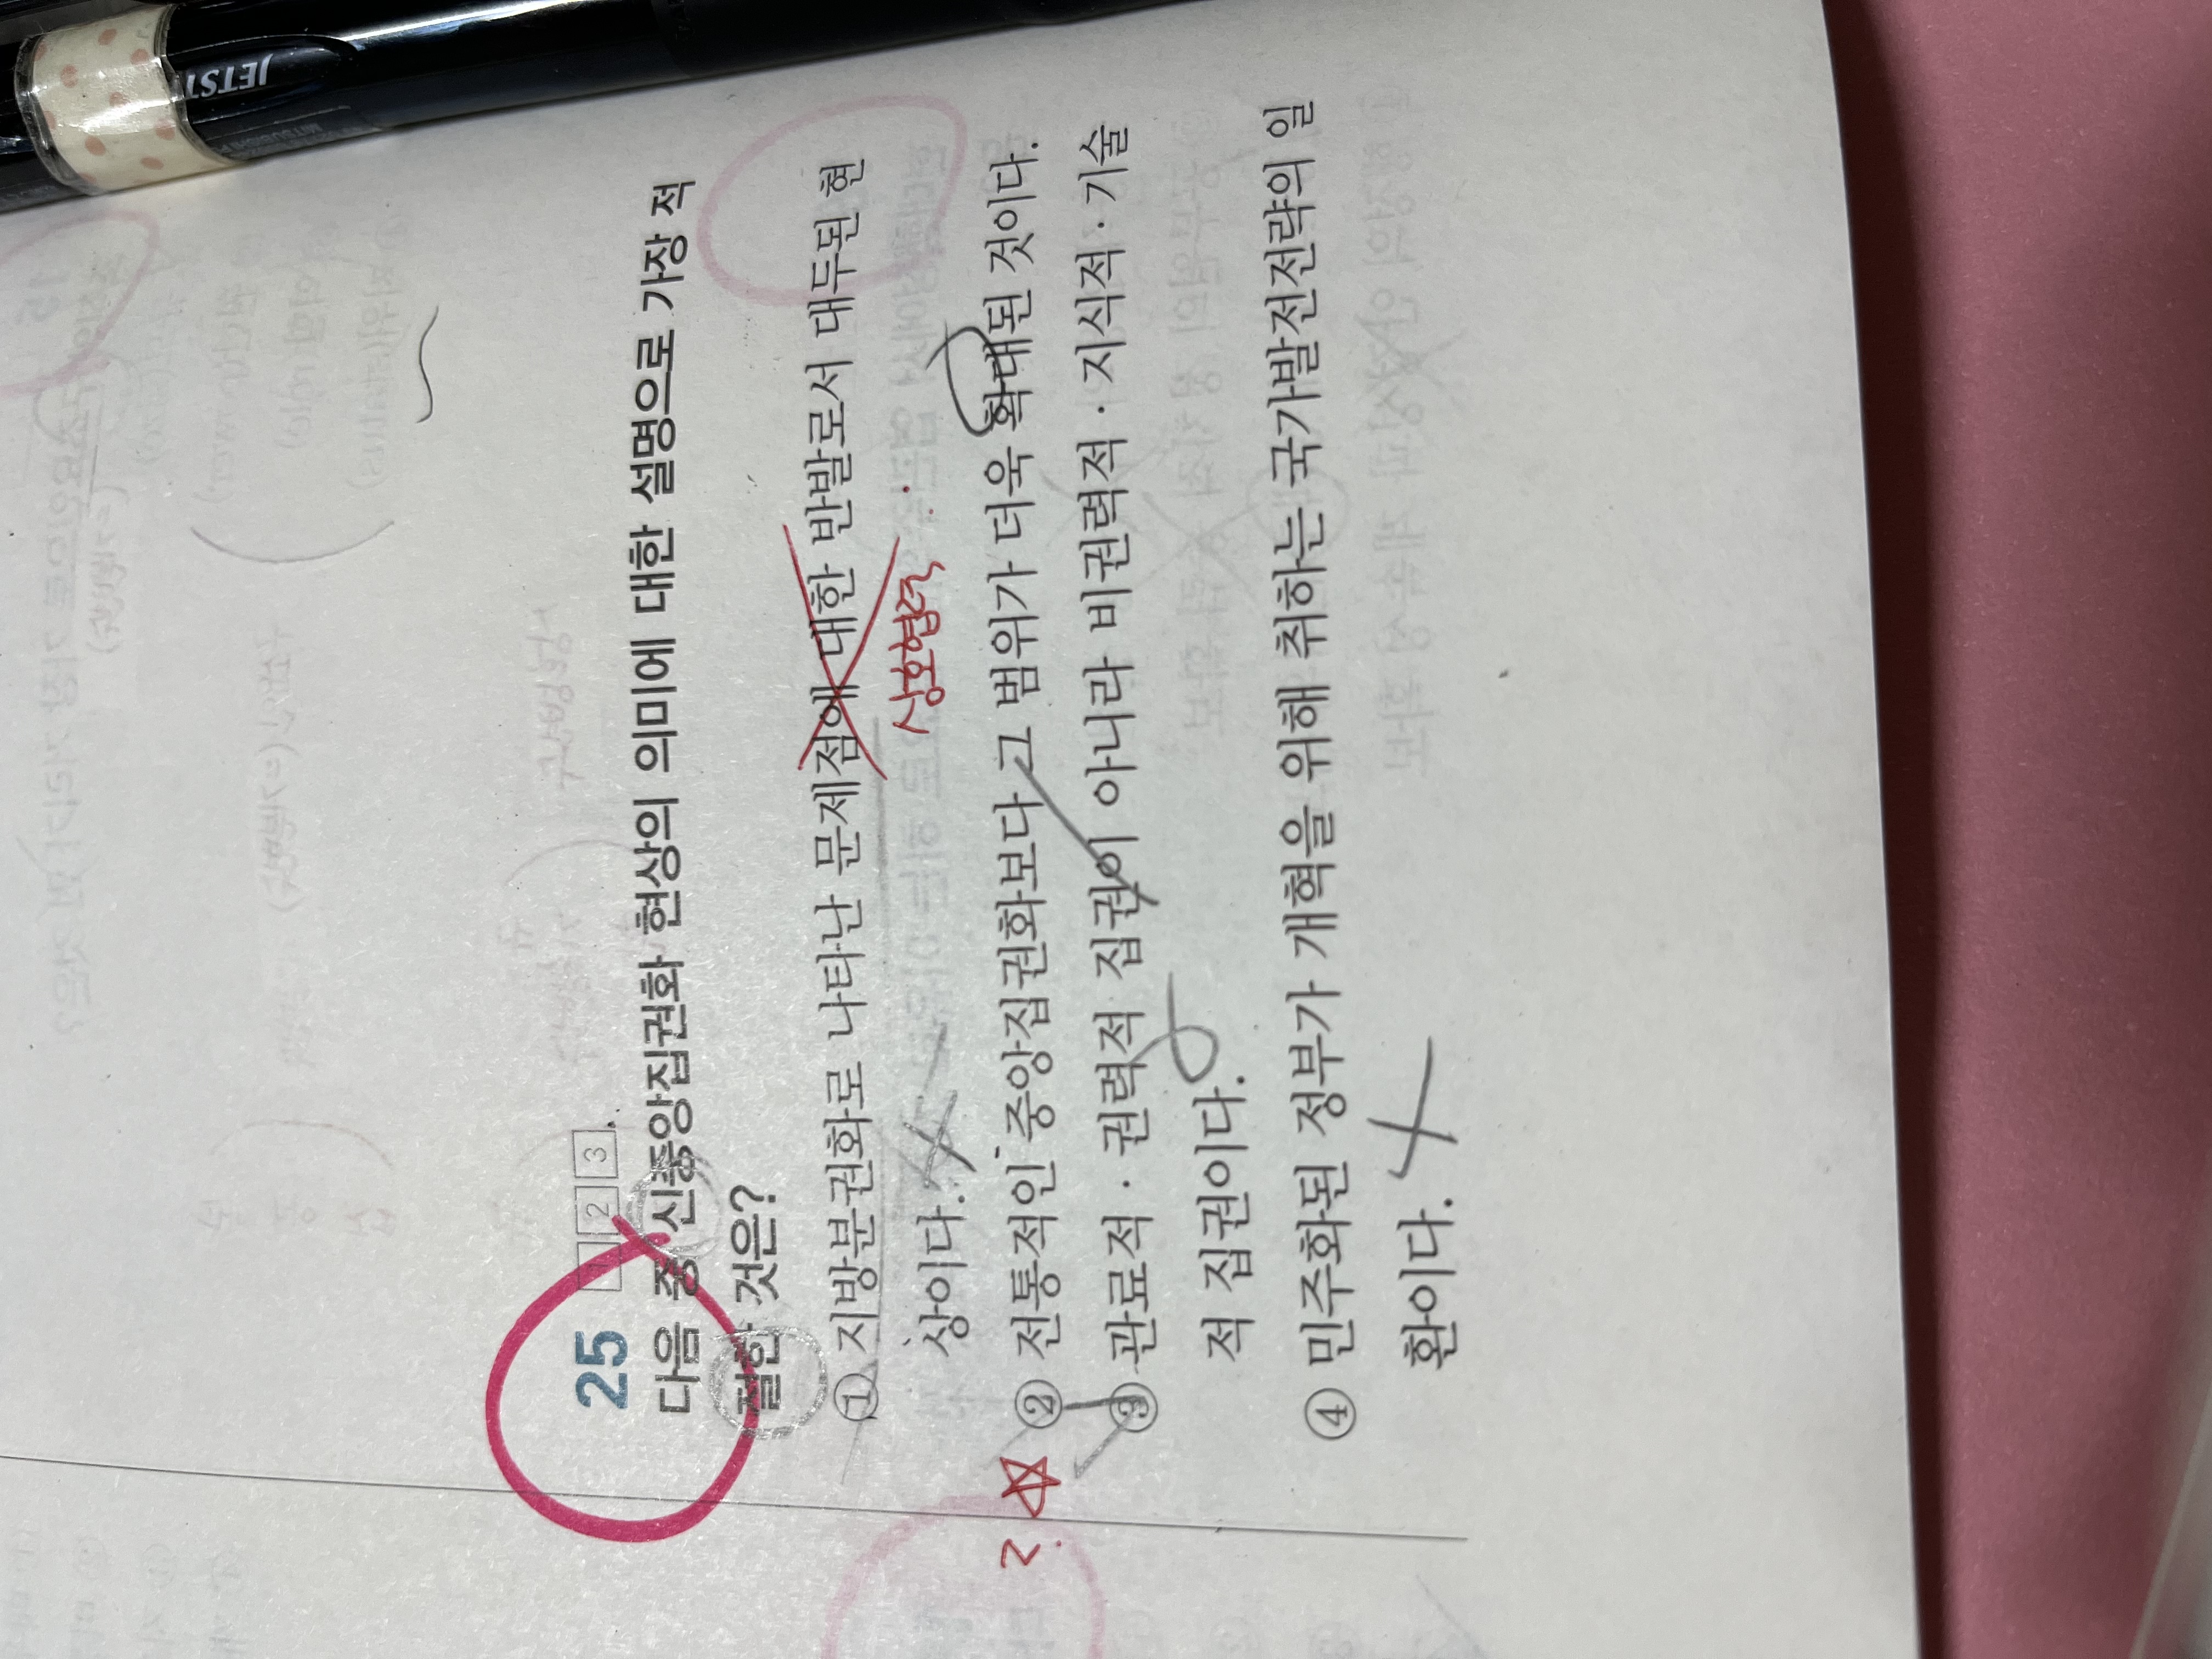 JETST
MITSUBISHI P
25
1 2 3
다음 중 신중앙집권화 현상의 의미에 대한 설명으로 가장 적
절한 것은?
① 지방분권화로 나타난 문제점에 대한 반발로서 대두된 현
상이다.
상호협력
② 전통적인 중앙집권화보다 그 범위가 더욱 확대된 것이다.
③ 관료적·권력적 집권이 아니라 비권력적·지식적·기술
적 집권이다.
④ 민주화된 정부가 개혁을 위해 취하는 국가발전전략의 일
환이다.
?